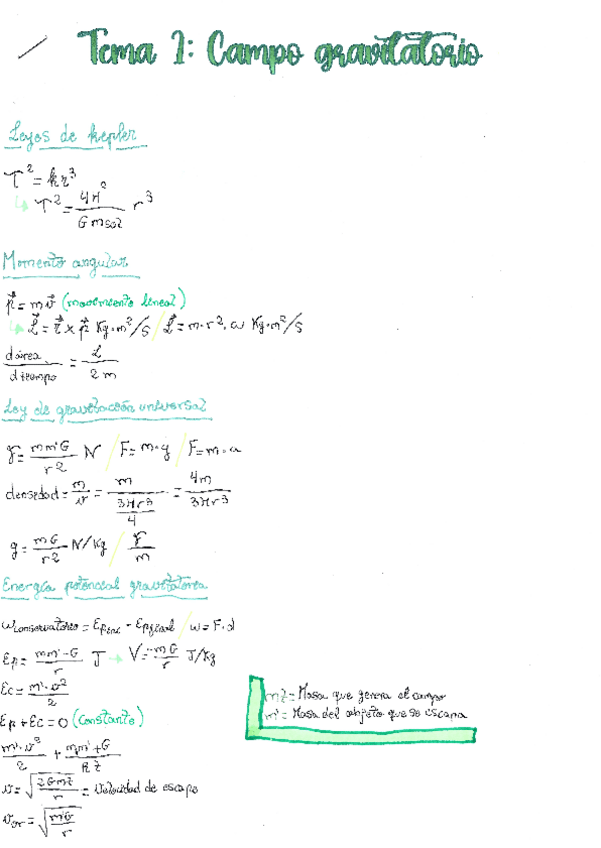 Tema 1: Campo gravitatorio
Leyes de kepler
T² = kr³
↳ T² = 4π² / G msol r³
Momento angular
p⃗ = mv⃗ (movimiento lineal)
↳ L⃗ = r⃗ x p⃗ Kg·m²/s / L⃗ = m·r²·ω Kg·m²/s
dárea / dtiempo = L / 2m
Ley de gravitación universal
F = mm'G / r² N / F = m·g / F = m·a
densidad = m / v = m / (3πr³ / 4) = 4m / 3πr³
g = mG / r² N/Kg / F / m
Energía potencial gravitatoria
Wconservatorio = Epini - Epfinal / w = F·d
Ep = mm'-G / r J → V = -mG / r J/Kg
Ec = m'·v² / 2
Ep + Ec = 0 (constante)
m'·v² / 2 + mm'+G / RZ
v = √(2GmZ / r) = Velocidad de escape
vor = √(m'G / r)
mZ = Masa que genera el campo
m' = Masa del objeto que se escapa